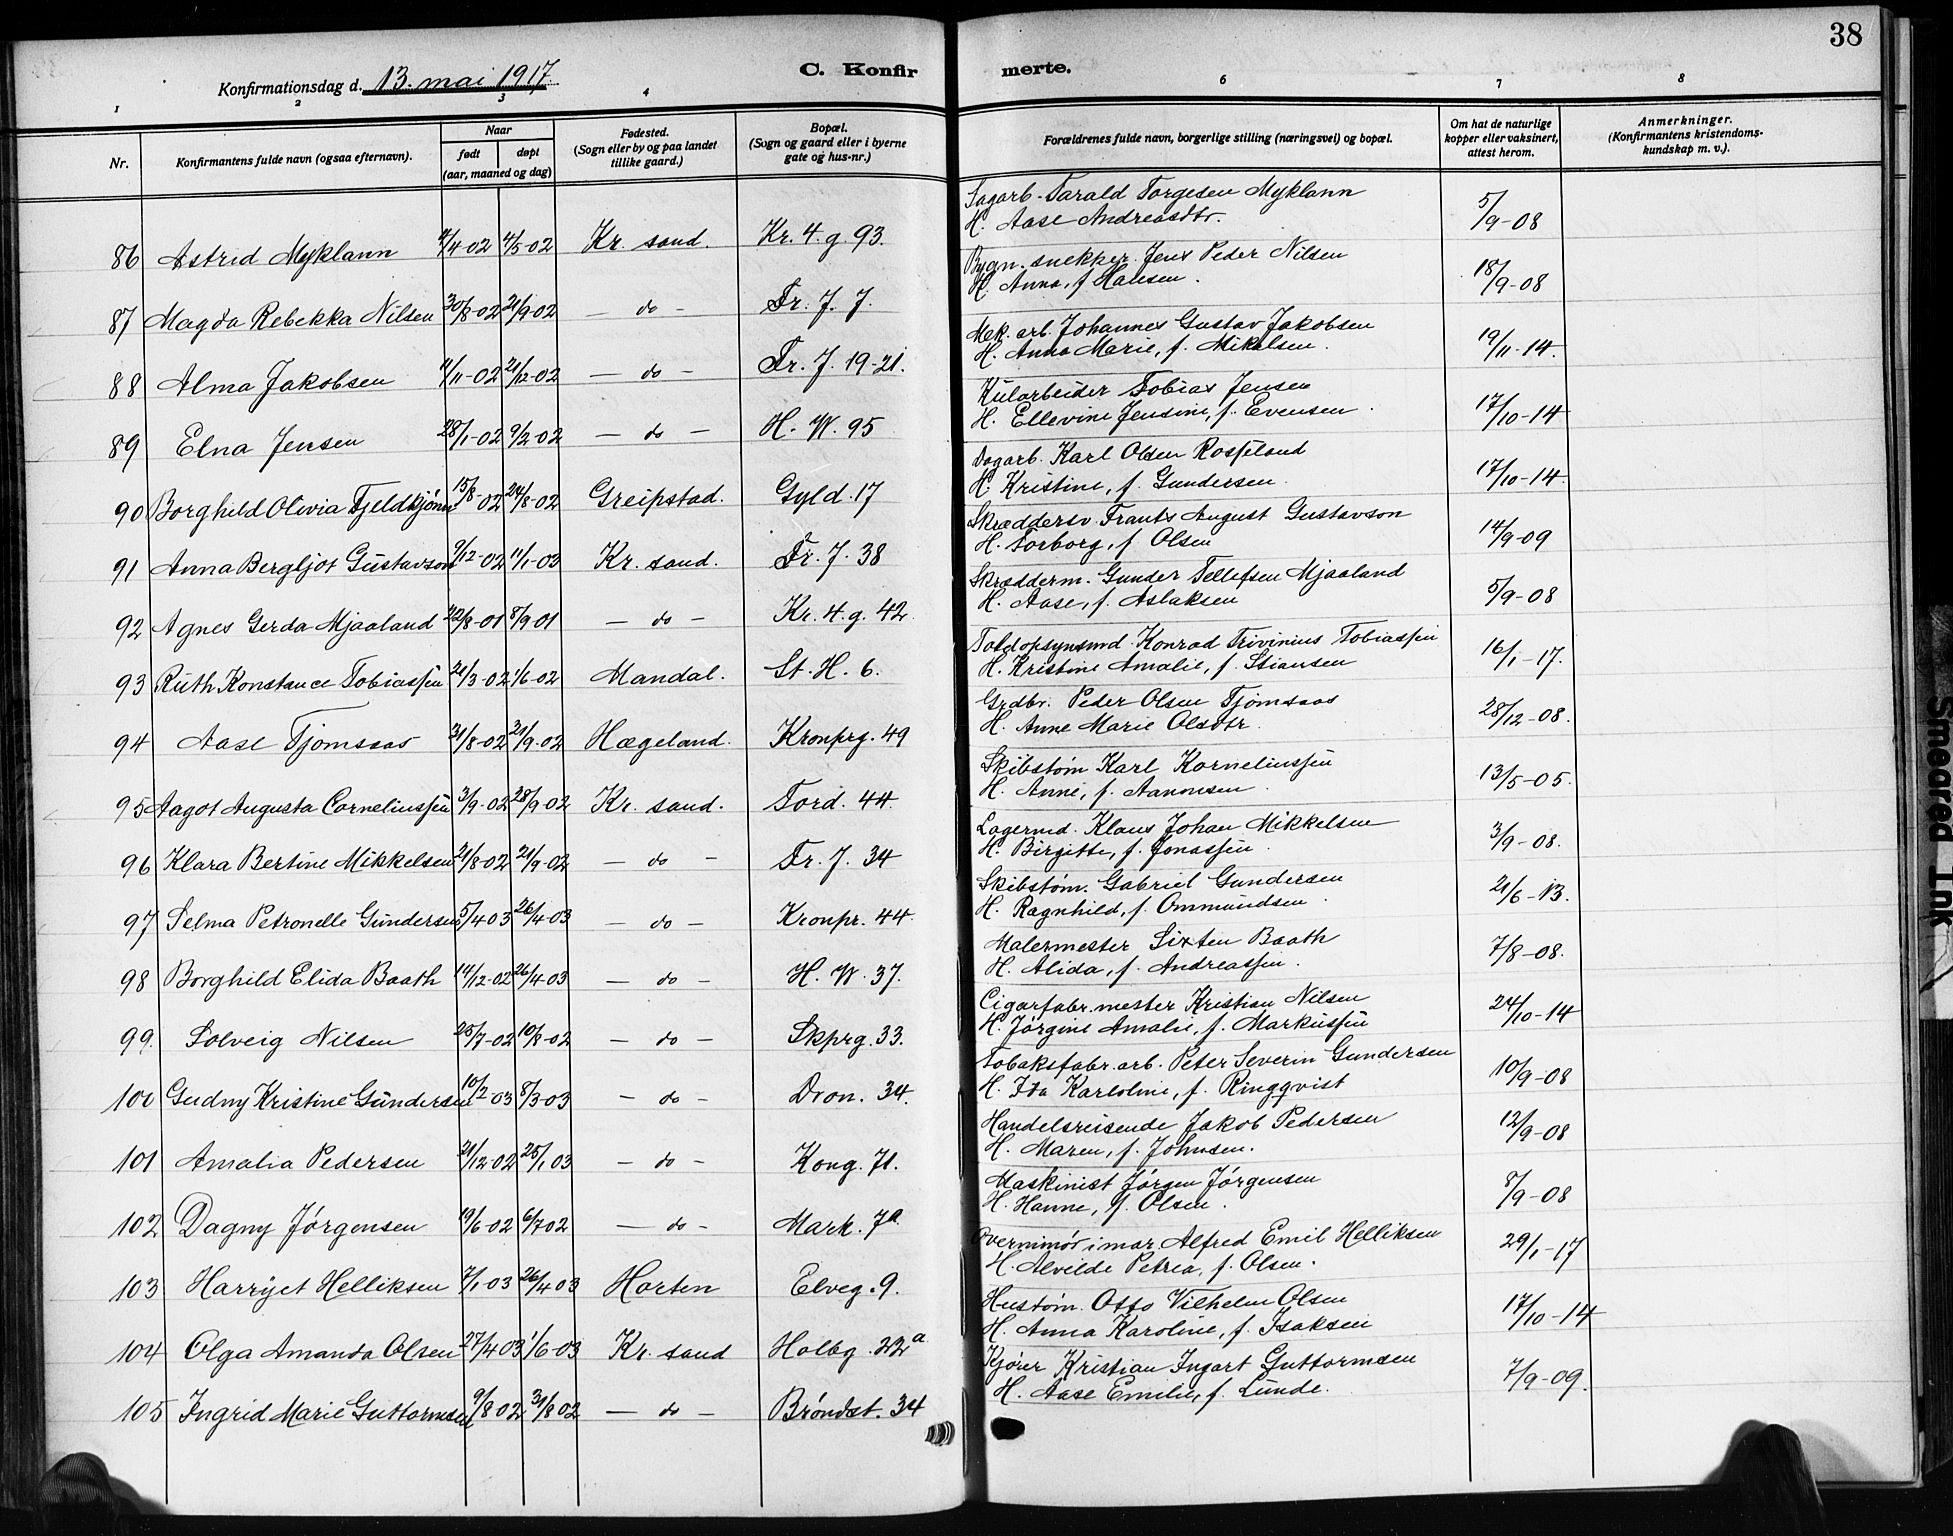 38
Konfirmationsdag d. 13. mai 1917.
C. Konfirmerte.
1 2 3 4 6 7 8
Nr.
Konfirmantens fulde navn (ogsaa efternavn).
Naar
født døpt
(aar, maaned og dag)
Fødested.
(Sogn eller by og paa landet
tillike gaard.)
Bopæl.
(Sogn og gaard eller i byerne
gate og hus-nr.)
Forældrenes fulde navn, borgerlige stilling (næringsvei) og bopæl.
Om hat de naturlige
kopper eller vaksinert,
attest herom.
Anmerkninger.
(Konfirmantens kristendoms-
kundskap m. v.).
Sagarb. Tarald Torgesen Myklann
86 Astrid Myklann 4/4-02 4/5-02 Kr. sand. Kr. 4. g. 93. H. Aase Andreasdtr. 5/9-08
Bygn. snekker Jens Peder Nilsen
87 Magda Rebekka Nilsen 30/8-02 21/9-02 — do — Fr. J. 7. H. Anna, f. Hansen. 18/9-08
Mek. arb. Johannes Gustav Jakobsen
88 Alma Jakobsen 11/11-02 21/12-02 — do — Fr. J. 19-21. H. Anna Marie, f. Mikalsen. 19/11-14.
Kularbeider Tobias Jensen
89 Elna Jensen 28/1-02 9/2-02 — do — H. W. 95 H. Ellevine Jensine, f. Evensen. 17/10-14
Dagarb. Karl Olsen Rosseland
90 Borghild Olivia Fjeldkjønn 15/8-02 24/8-02 Greipstad. Gyld. 17 H. Kristine, f. Gundersen. 17/10-14
Skræddersv. Frants August Gustavson
91 Anna Bergljot Gustavson 9/12-02 11/1-03 Kr. sand. Fr. J. 38 H. Torborg, f. Olsen 14/9-09
Skrædderm. Gunder Tellefsen Mjaaland
92 Agnes Gerda Mjaaland 22/8-01 8/9-01 — do — Kr. 4. g. 42. H. Aase, f. Aslaksen 5/9-08
Toldopsynsmd. Konrad Trivinius Tobiassen
93 Ruth Konstance Tobiassen 21/3-02 1/6-02 Mandal. St. H. 6. H. Kristine Amalie, f. Stiansen 16/1-17.
Grdbr. Peder Olsen Tjomsaas
94 Aase Tjomsaas 31/8-02 21/9-02 Hægeland. Kronprg. 49 H. Anne Marie Olsdtr. 28/12-08.
Skibstøm Karl Korneliussen
95 Aagot Augusta Corneliussen 3/9-02 28/9-02 Kr. sand. Tord. 44 H. Anne, f. Aanonsen. 13/5-05.
Lagermd. Klaus Johan Mikkelsen
96 Klara Bertine Mikkelsen 21/8-02 21/9-02 — do — Fr. J. 34 H. Birgitte, f. Jonassen. 3/9-08.
Skibstøm. Gabriel Gundersen
97 Selma Petronelle Gundersen 5/4 03 26/4-03 — do — Kronpr. 44. H. Ragnhild, f. Ommundsen. 21/6-13.
Malermester Sixten Baath
98 Borghild Elida Baath 14/12-02 26/4-03 — do — H. W. 37. H. Alida, f. Andreassen. 7/8-08.
Cigarfabr. mester Kristian Nilsen
99. Solveig Nilsen 25/7-02 10/8-02 — do — Skprg. 33. H. Jørgine Amalie, f. Markussen 24/10-14
Tobaksfabr. arb. Peter Severin Gundersen
100 Gudny Kristine Gundersen 10/2-03 8/3-03 — do — Dron. 34. H. Ida Karloline, f. Ringqvist 10/9-08
Handelsreisende Jakob Pedersen
101 Amalia Pedersen 21/12-02 25/1 03 — do — Kong. 71. H. Maren, f. Johnsen. 12/9-08
Maskinist Jørgen Jørgensen
102 Dagny Jørgensen 19/6-02 6/7 02 — do — Mark. 7a H. Hanne, f. Olsen. 8/9-08
Overminør i mar. Alfred Emil Helliksen
103 Harrijet Helliksen 7/1-03 26/4 03 Horten Elveg. 9. H. Alvilde Petrea, f. Olsen. 29/1-17
Hustøm. Otto Vilhelm Olsen
104 Olga Amanda Olsen 27/4 03 1/6-03 Kr. sand Holbg. 22a H. Anna Karoline, f. Isaksen 17/10-14
Kjører Kristian Ingart Guttormsen
105 Ingrid Marie Guttormsen 9/8 02 31/8 02 — do — Brøndst. 34 H. Aase Emilie, f. Lunde. 7/9-09.
Smeared Ink